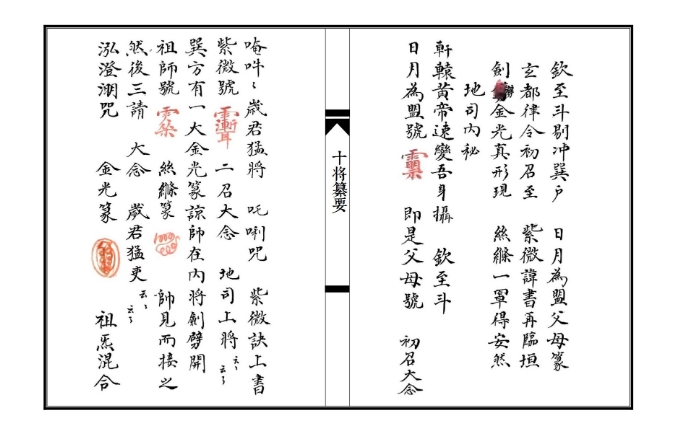 欽至斗剔冲巽户 日月為盟父母篆
玄都律令初召至 紫微諱書再臨垣
劍 金光真形現 絲縧一罩得安然
地司內秘
軒轅黄帝速變吾身攝 欽至斗
日月為盟號 即是父母號 初召大念
十将纂要
唵吽〻歲君猛将 吒唎咒 紫微訣上書
紫微號 二召大念 地司上將云〻
巽方有一大金光篆諒師在內将劍劈開
祖師號 絲縧篆 師見而接之
然後三請 大念 歲君猛吏云〻
泓澄湖咒 金光篆 祖炁混合